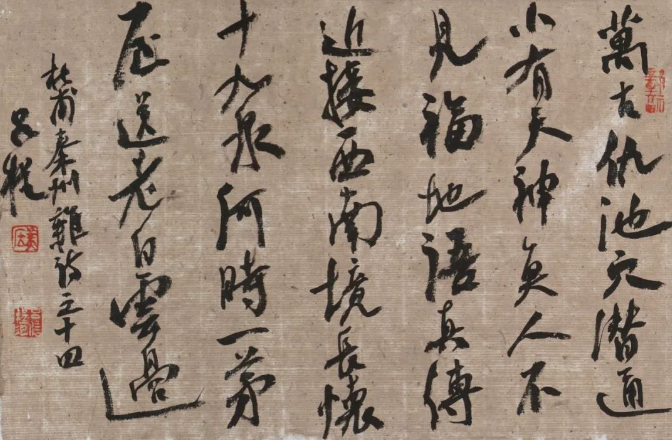 萬古仇池穴潜通
小有天神魚人不
見福地語真傳
近接西南境長懷
十九泉何時一茅
屋送老白雲邊
杜甫秦州雜詩之十四